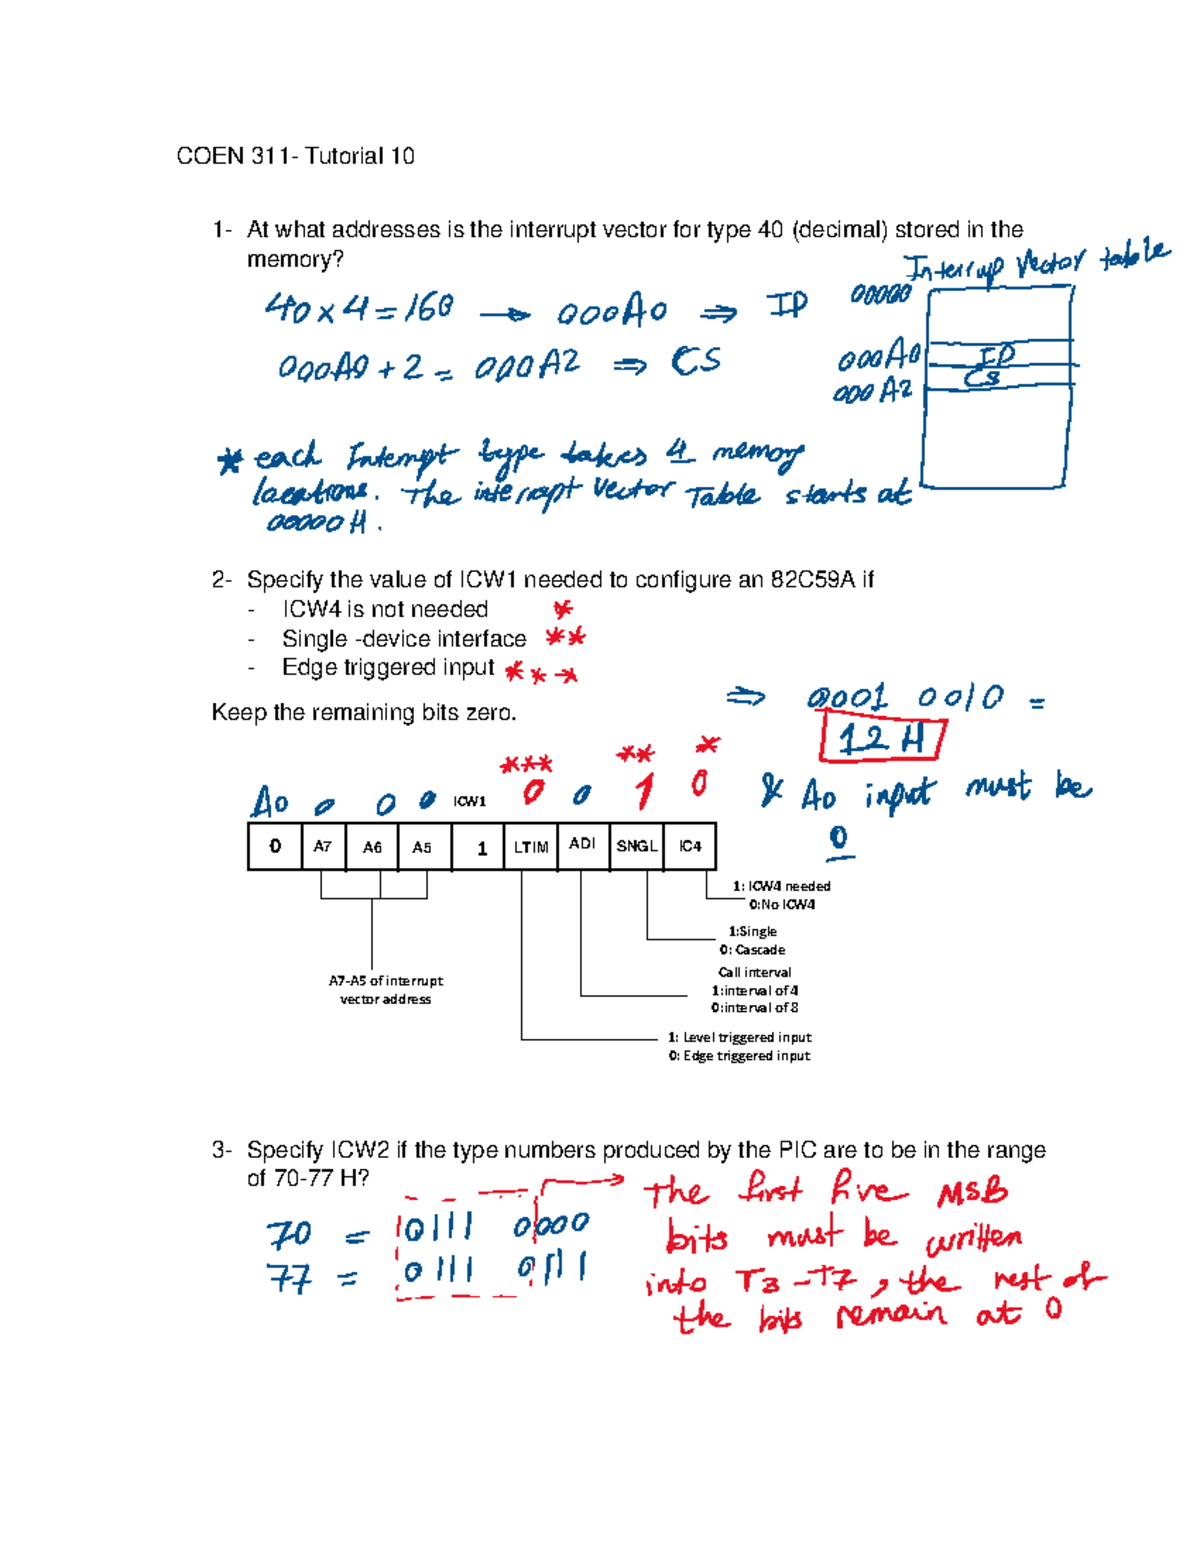 COEN 311- Tutorial 10
1- At what addresses is the interrupt vector for type 40 (decimal) stored in the
memory?
Interrup Vector table
40 x 4 = 160 → 000A0 ⇒ IP
00000
000A0 + 2 = 000A2 ⇒ CS
000A0 IP
000A2 CS
* each Interrupt type takes 4 memory
locations. The interrupt Vector Table starts at
00000 H.
2- Specify the value of ICW1 needed to configure an 82C59A if
- ICW4 is not needed *
- Single -device interface **
- Edge triggered input ***
Keep the remaining bits zero.
⇒ 0001 0010 =
12 H
& A0 input must be
0
*** ** *
A0 0 0 0 ICW1 0 0 1 0
0 A7 A6 A5 1 LTIM ADI SNGL IC4
1: ICW4 needed
0:No ICW4
1:Single
0: Cascade
Call interval
1:interval of 4
0:interval of 8
A7-A5 of interrupt
vector address
1: Level triggered input
0: Edge triggered input
3- Specify ICW2 if the type numbers produced by the PIC are to be in the range
of 70-77 H?
70 = 0111 0000
77 = 0111 0111
The first five MSB
bits must be written
into T3-T7, the rest of
the bits remain at 0